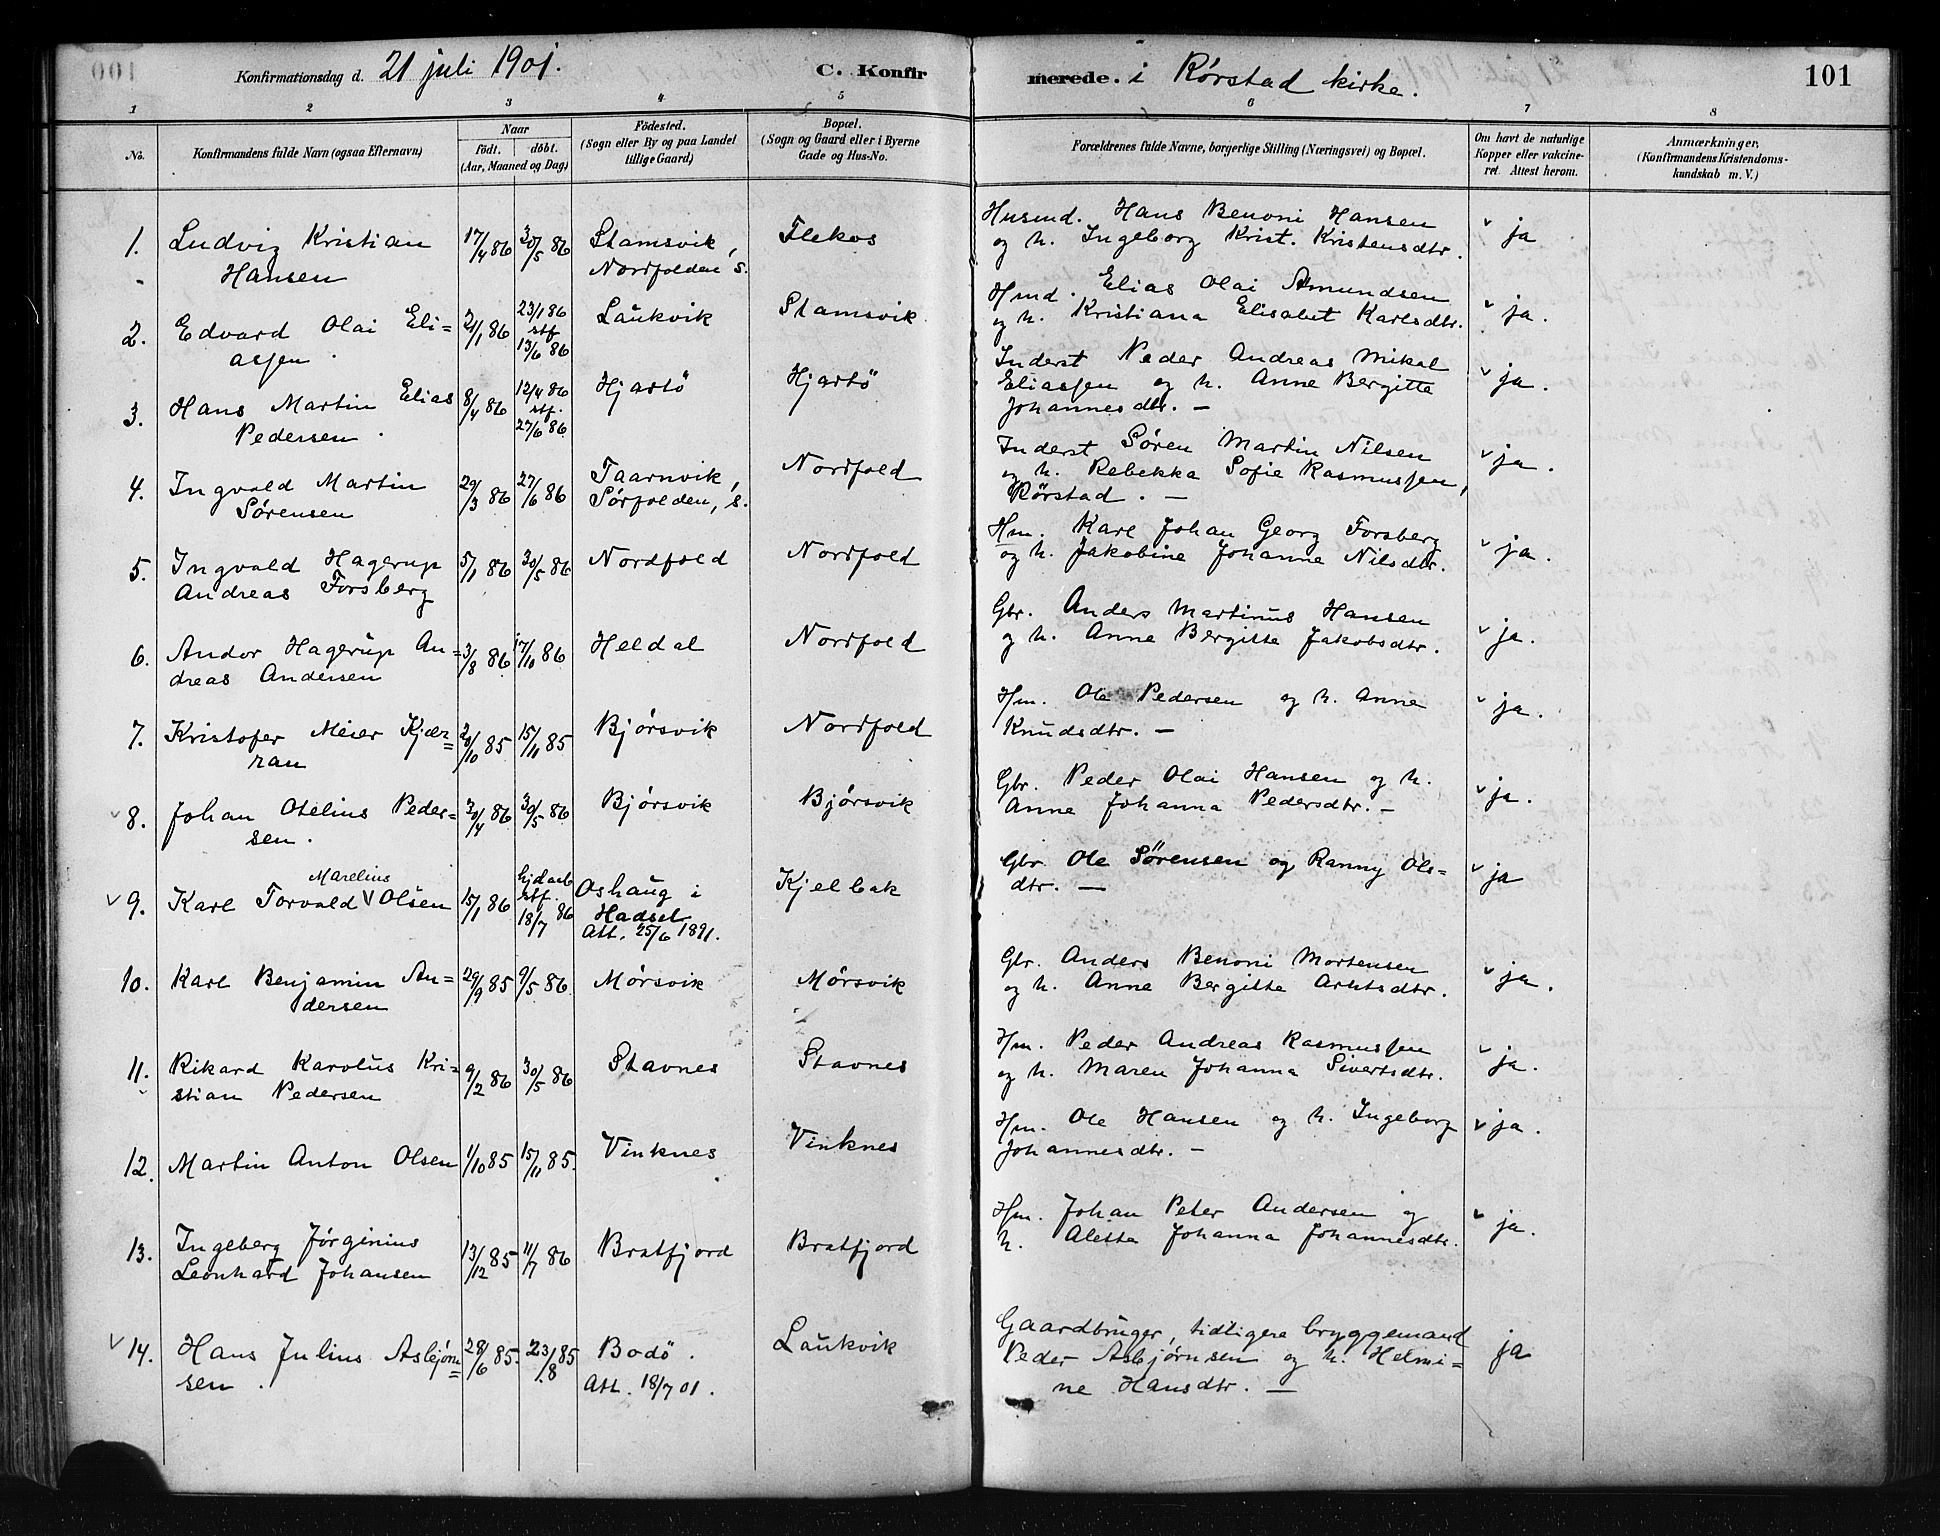 Konfirmationsdag d. 21 juli 1901. C. Konfirmerede. i Rørstad kirke. 101
1 2 3 4 5 6 7 8
No. Konfirmandens fulde Navn (ogsaa Efternavn) Naar födt. döbt. (Aar, Maaned og Dag) Födested. (Sogn eller By og paa Landet tillige Gaard) Bopæl. (Sogn og Gaard eller i Byerne Gade og Hus-No. Forældrenes fulde Navne, borgerlige Stilling (Næringsvei) og Bopæl. Om havt de naturlige Kopper eller vakcineret. Attest herom. Anmærkninger, (Konfirmandens Kristendomskundskab m. V.)
1. Ludvig Kristian 17/4 86 30/5 86 Stamsvik, Flekos Husmd. Hans Benoni Hansen ja
Hansen Nordfolden s. og h. Ingeborg Krist. Kristensdtr.
2. Edvard Olai Eli- 2/1 86 23/1 86 Laukvik Stamsvik Hmd. Elias Olai Amundsen ja.
assen. stf. 13/6 86 og h. Kristiana Elisabet Karlsdtr.
3. Hans Martin Elias 8/4 86 12/4 86 Hjartö Hjartö Inderst Peder Andreas Mikal ja.
Pedersen. stf. 27/6 86 Eliassen og h. Anne Bergitte
Johannesdtr. —
4. Ingvald Martin 29/3 86 27/6 86 Taarnvik, Nordfold Inderst Søren Martin Nilsen ja.
Sørensen Sørfolden, s. og h. Rebekka Sofie Rasmussen,
Rörstad. —
5. Ingvald Hagerup 5/1 86 30/5 86 Nordfold Nordfold Hm. Karl Johan Georg Forsberg ja.
Andreas Forsberg og h. Jakobine Johanne Nilsdtr.
6. Andor Hagerup An= 3/8 86 17/10 86 Heldal Nordfold Gbr. Anders Martinus Hansen ja.
dreas Andersen og h. Anne Bergitte Jakobsdtr.
7. Kristofer Meier Kjær= 20/10 85 15/11 85 Bjørsvik Nordfold Hm. Ole Pedersen og h. Anne ja.
ran Knudsdtr. —
8. Johan Otelius Peder= 30/4 86 30/5 86 Bjørsvik Bjørsvik Gbr. Peder Olai Hansen og h. ja.
sen. Anne Johanna Pedersdtr. —
9. Karl Torvald Marelius Olsen 15/1 86 hjdøb stf. 18/7 86 Oshaug i Kjelbak Gbr. Ole Sørensen og Ranny Ols= ja
Hadsel dtr. —
Att. 25/6 1891.
10. Karl Benjamin An= 29/9 85 9/5 86 Mørsvik Mørsvik Gbr. Anders Benoni Mortensen ja.
dersen og h. Anne Bergitte Arntsdtr.
11. Rikard Karolus Kri= 9/2 86 30/5 86 Stavnes Stavnes Hm. Peder Andreas Rasmussen ja.
stian Pedersen og h. Maren Johanna Sivertsdtr.
12. Martin Anton Olsen 1/10 85 15/11 85. Vinknes Vinknes Hm. Ole Hansen og h. Ingeborg ja.
Johannesdtr. —
13. Ingeberg Jørginius 13/12 85 11/7 86 Bratfjord Bratfjord Hm. Johan Peter Andersen og ja.
Leonhard Johansen h. Aletta Johanna Johannesdtr.
14. Hans Julius Asbjørn= 28/6 85. 23/8 85 Bodö. Laukvik Gaardbruger, tidligere bryggemand ja
sen. Att. 18/7 01. Peder Asbjørnsen og h. Helmi=
ne Hansdtr. —